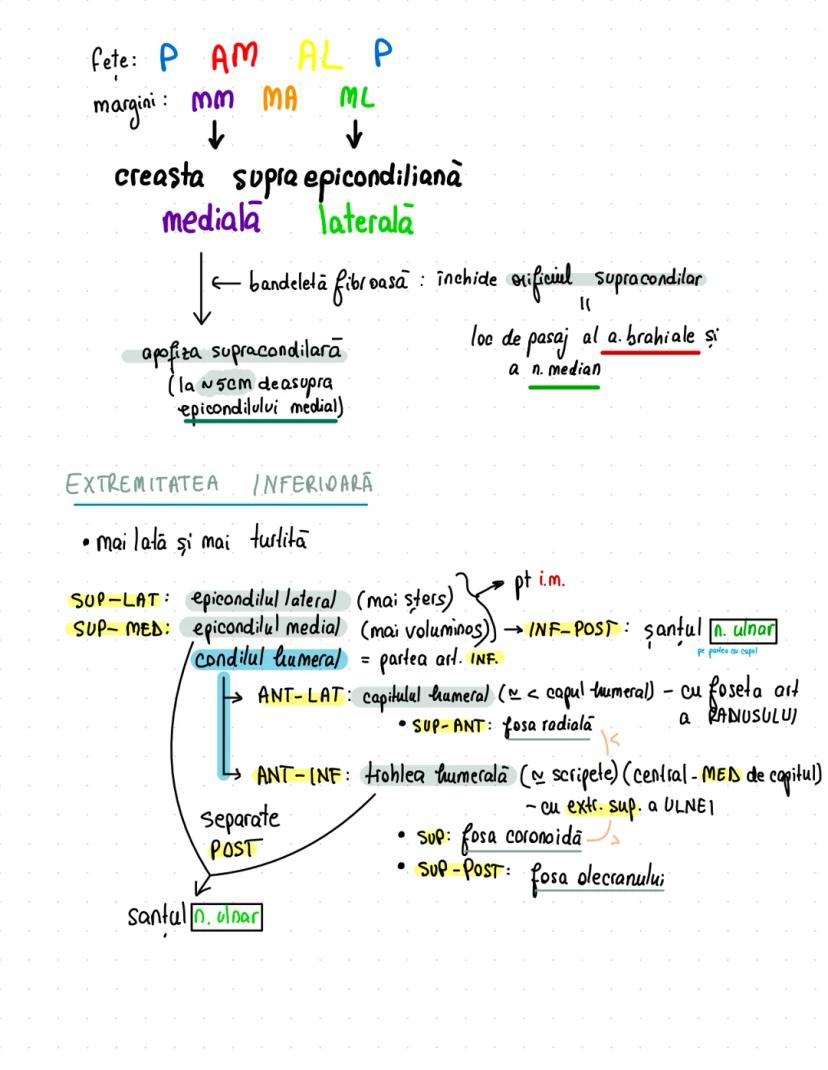 fețe: P AM AL P
margini: MM MA ML
creasta supraepicondiliană
medială laterală
← bandeletă fibroasă : închide orificiul supracondilar
=
loc de pasaj al a. brahiale și
a n. median
apofiza supracondilară
(la ~5cm deasupra
epicondilului medial)
EXTREMITATEA INFERIOARĂ
• mai lată și mai turtită
SUP-LAT: epicondilul lateral (mai șters) → pt i.m.
SUP-MED: epicondilul medial (mai voluminos) → INF-POST: șanțul n. ulnar
pe partea cu capul
condilul humeral = partea art. INF.
→ ANT-LAT: capitulul humeral (≃ < capul humeral) - cu foseta art
a RADIUSULUI
• SUP-ANT: fosa radială
→ ANT-INF: trohlea humerală (≃ scripete) (central-MED de capitul)
- cu extr. sup. a ULNEI
separate
POST
• SUP: fosa coronoidă
• SUP-POST: fosa olecranului
șanțul n. ulnar